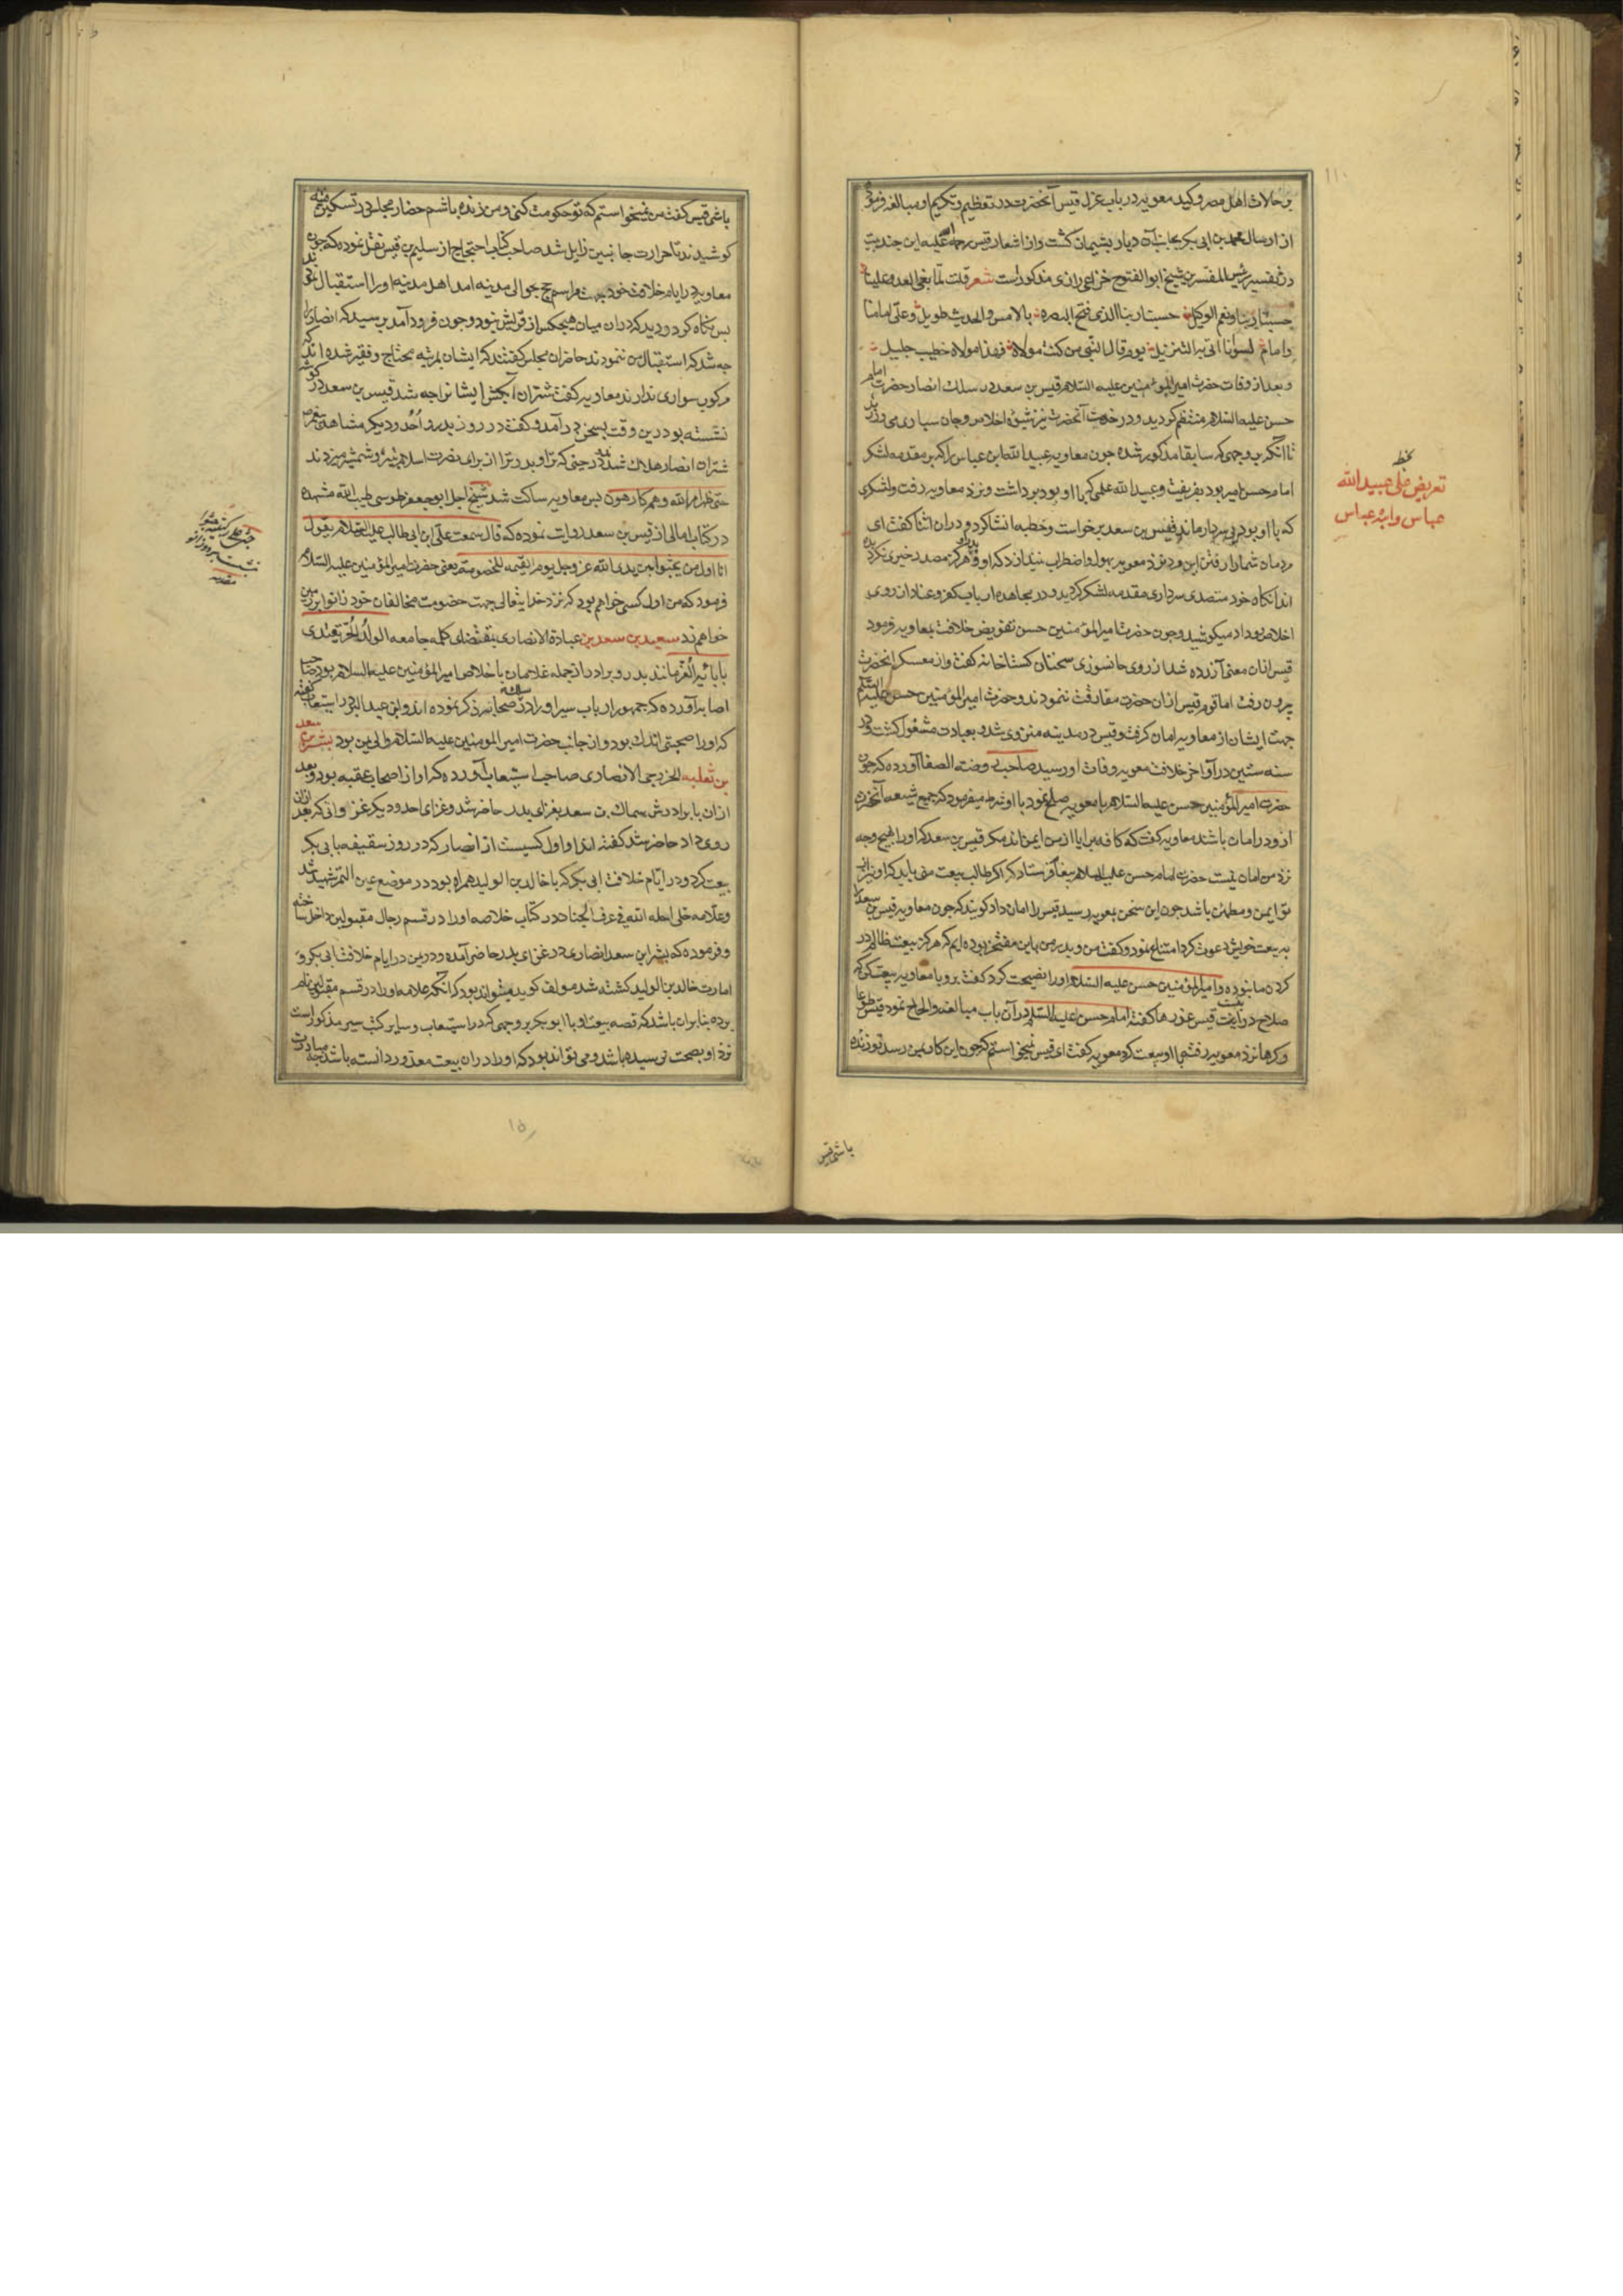 بر حالات اهل مصر و کید معویه در باب عزل قیس آنحضرت در تعظیم و تکریم او مبالغه فرمود
از ارسال محمد بن ابی بکر بجانب آن دیار پشیمان کشت و از اشعار قیس رحمة الله علیه این چند بیت
در تفسیر رئیس المفسرین شیخ ابو الفتوح خزاعی رازی مذکور است شعر قلت لما بغی العدو علینا
حسبنا ربنا و نعم الوکیل حسبنا ربنا الذی فتح البصره بالامس والحدیث طویل وعلی امامنا
وامام لسوانا اتی به التنزیل یوم قال النبی من کنت مولاه فهذا مولاه خطیب جلیل
و بعد از وفات حضرت امیر المؤمنین علیه السلام قیس بن سعد در سلک انصار حضرت امام
حسن علیه السلام منتظم کردید و در خدمت آنحضرت نیز شیوه اخلاص و جان سپاری می ورزید
تا آنکه بوجهی که سابقا مذکور شده چون معاویه عبید الله ابن عباس را که بر مقدمه لشکر
امام حسن امیر بود بفریفت و عبید الله علمی که با او بود برداشت و نزد معاویه رفت و لشکری
که با او بود بی سردار ماند قیس بن سعد برخاست و خطبه انشا کرد و در ان اثنا کفت ای
مردمان شما را رفتن این مرد نزد معویه بهول و اضطراب نیندازد که او و پدر او هرکز مصدر خیری نکردیده
اند انکاه خود متصدی سرداری مقدمه لشکر کردید و در مجاهده ارباب کفر و عناد از روی
اخلاص و داد میکوشید و چون حضرت امیر المؤمنین حسن تفویض خلافت بمعاویه فرمود
قیس از ان معنی آزرده شد از روی جانسوزی سخنان کستاخانه کفت و از معسکر آنحضرت
بیرون رفت اما قوم قیس از ان حضرت مفارقت ننمودند و حضرت امیر المؤمنین حسن علیه السلم
جهت ایشان از معاویه امان کرفت و قیس در مدینه منزوی شد و بعبادت مشغول کشت و در
سنه ستین در آواخر خلافت معویه وفات اورسید صاحب روضة الصفا آورده که چون
حضرت امیر المؤمنین حسن علیه السلام با معویه صلح نمود با او شرط میفرمود که جمیع شیعه آنحضرت
ازو در امان باشند معاویه کفت که کافه برایا از من ایمن اند مکر قیس بن سعد که او را بهیچ وجه
نزد من امان نیست حضرت امام حسن علیه السلام پیغام فرستاد که اکر طالب بیعت منی باید که او نیز از
تو ایمن و مطمئن باشد چون این سخن بمعویه رسید قیس را امان داد کویند که چون معاویه قیس بن سعد را
به بیعت خویش دعوت کرد امتناع نمود و کفت من و پدر من باین مفتخر بوده ایم که هرکز بیعت ظالم در
کردن ما نبوده و امیر المؤمنین حسن علیه السلام او را نصیحت کرد و کفت برو با معاویه بیعت کن که
صلاح درینست قیس عذرها کفته امام حسن علیه السلم در آن باب مبالغه و الحاح نمود قیس طوعا
و کرها نزد معویه رفته با او بیعت کرد معویه کفت ای قیس نمیخواستم که چون این کار بمن رسد تو زنده
باشی قیس
تعریض خلی عبید الله
عباس و ابن عباس
باشی قیس کفت من نمیخواستم که تو حکومت کنی و من زنده باشم حضار مجلس در تسکین فتنه
کوشیدند تا حرارت جانبین زایل شد صاحب کتاب احتجاج از سلیم بن قیس نقل نموده که چون
معاویه در ایام خلافت خود جهت مراسم حج بحوالی مدینه امد اهل مدینه او را استقبال نمودند
پس نکاه کرد و دید که دران میان هیچکس از قریش نبود و چون فرود آمد پرسید که انصار را
چه شد که استقبال من ننمودند حاضران مجلس کفتند که ایشان بمرتبه محتاج و فقیر شده اند که
مرکوب سواری ندارند معاویه کفت شتران آبکش ایشانرا چه شد قیس بن سعد در کوشه
نشسته بود درین وقت بسخن در آمد و کفت در روز بدر و اُحُد و دیکر مشاهد پیغمبر
شتران انصار هلاک شدند در حینی که ترا و پدر ترا از برای نصرت اسلام نیزه و شمشیر میزدند
حتی ظهر امر الله و هم کارهون پس معاویه ساکت شد شیخ اجل ابو جعفر طوسی طیب الله مشهده
در کتاب امالی از قیس بن سعد روایت نموده که قال سمعت علی ابن ابی طالب علیه السلام یقول
انا اول من یجثو بین یدی الله عز وجل یوم القیمه للخصومة یعنی حضرت امیر المؤمنین علیه السلام
فرمود که من اول کسی خواهم بود که نزد خدایتعالی جهت خصومت مخالفان خود زانو بر زمین
خواهم زد سعید بن سعد بن عبادة الانصاری بمقتضای کلمه جامعه الولد الحر یقتدی
بابائه الغر مانند پدر و برادر از جمله غلامان باخلاص امیر المؤمنین علیه السلام بود صاحب
اصابه آورده که جمهور ارباب سیر او را در سلک صحابه ذکر نموده اند و ابن عبد البر در استیعاب کفته
که او را صحبتی اندک بود و از جانب حضرت امیر المومنین علیه السلام والی یمن بود بشر بن سعد
بن ثعلبه الخزرجی الانصاری صاحب استیعاب آورده که او از اصحاب عقبه بود و بعد
ازان با برادرش سماک بن سعد بغزای بدر حاضر شد و غزای احد و دیکر غزواتی که بعد ازان
روی داد حاضر شد کفته اند او اول کسیست از انصار که در روز سقیفه با ابی بکر
بیعت کرد و در ایام خلافت ابی بکر که با خالد بن الولید همراه بود در موضع عین التمر شهید شد
وعلامه حلی احله الله فی غرف الجنان در کتاب خلاصه او را در قسم رجال مقبولین داخل ساخته
و فرموده که بشر ابن سعد انصاری در غزای بدر حاضر آمده و درین در ایام خلافت ابی بکر و
امارت خالد بن الولید کشته شد مولف کوید میتواند بود که آنکه علامه او را در قسم مقبولین نام
برده بنابران باشد که قصه بیعت او با ابوبکر بر وجهی که در استیعاب و سایر کتب سیر مذکور است
نزد او بصحت نرسیده باشد و می تواند بود که او را دران بیعت معذور دانسته باشد چه مبادرت